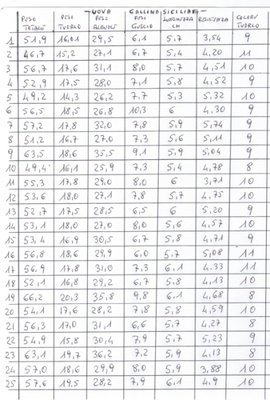 UOVA GALLINA SICILIANA
PESO TOTALE PESO TUORLO PESO ALBUME PESO GUSCIO LUNGHEZZA CM RESISTENZA COLORE TUORLO
1 51,9 16,01 29,5 6,1 5,7 3,54 9
2 46,7 15,2 27,1 6,7 5,4 4,20 11
3 56,7 17,6 31,1 8,0 5,7 4,51 10
4 52,9 17,5 28,0 7,1 5,8 4,52 9
5 49,2 14,3 26,2 7,7 5,3 5,32 10
6 56,5 18,5 26,8 10,3 6 4,30 9
7 57,2 17,8 32,0 7,8 5,9 5,74 9
8 51,2 16,7 27,0 7,3 5,6 5,11 9
9 63,5 18,6 35,5 9,1 5,9 5,04 9
10 49,4 16,1 25,9 7,3 5,4 4,78 8
11 55,3 17,8 29,0 8,0 6 3,71 10
12 53,6 18,0 27,1 7,8 5,7 4,75 10
13 52,7 17,5 28,5 6,5 6 5,20 9
14 53,1 18,0 27,0 8,0 5,6 4,57 10
15 53,4 16,9 30,5 6,7 5,8 4,71 9
16 56,8 18,6 29,9 6,0 5,7 5,08 11
17 56,9 17,8 31,0 7,3 6,1 4,33 11
18 52,1 16,8 29,2 6,7 5,8 4,13 10
19 66,2 20,3 35,8 9,8 6,1 4,68 8
20 54,1 17,6 28,2 7,8 5,8 4,59 10
21 56,3 17,0 31,1 6,6 5,7 4,27 8
22 54,9 15,8 30,4 7,9 5,7 5,23 9
23 63,1 19,7 36,2 7,2 5,9 4,13 8
24 57,0 18,6 29,9 8,0 5,9 3,88 10
25 57,6 19,5 28,2 7,9 6,1 4,9 10